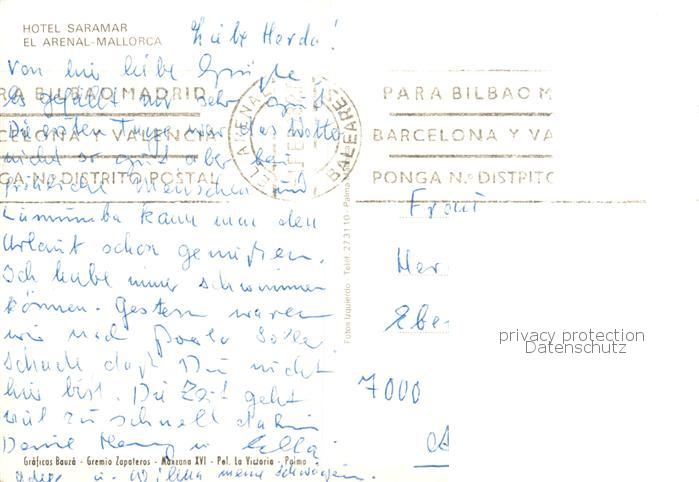 HOTEL SARAMAR
EL ARENAL-MALLORCA
Liebe Herda!
Von hier liebe Grüße
es gefällt mir sehr gut
Die ersten Tage war das Wetter
nicht so gut aber bei
fröhliche Menschen und
Lumumba kann man den
Urlaub schon genießen.
Ich habe immer schwimmen
können. Gestern waren
wir nach
schade daß Du nicht
hier bist. Die Zeit geht
viel zu schnell dahin
PARA BILBAO MADRID
BARCELONA Y VALENCIA
PONGA N.º DISTRITO POSTAL
EL ARENAL
BALEARES
PARA BILBAO M
BARCELONA Y VA
PONGA N.º DISTRITO
Fotos Izquierdo - Teléf. 27 31 10 - Palma
Frau
Her
Ebe
7000
privacy protection
Datenschutz
Gráficas Bauzá - Gremio Zapateros - Manzana XVI - Pol. La Victoria - Palma